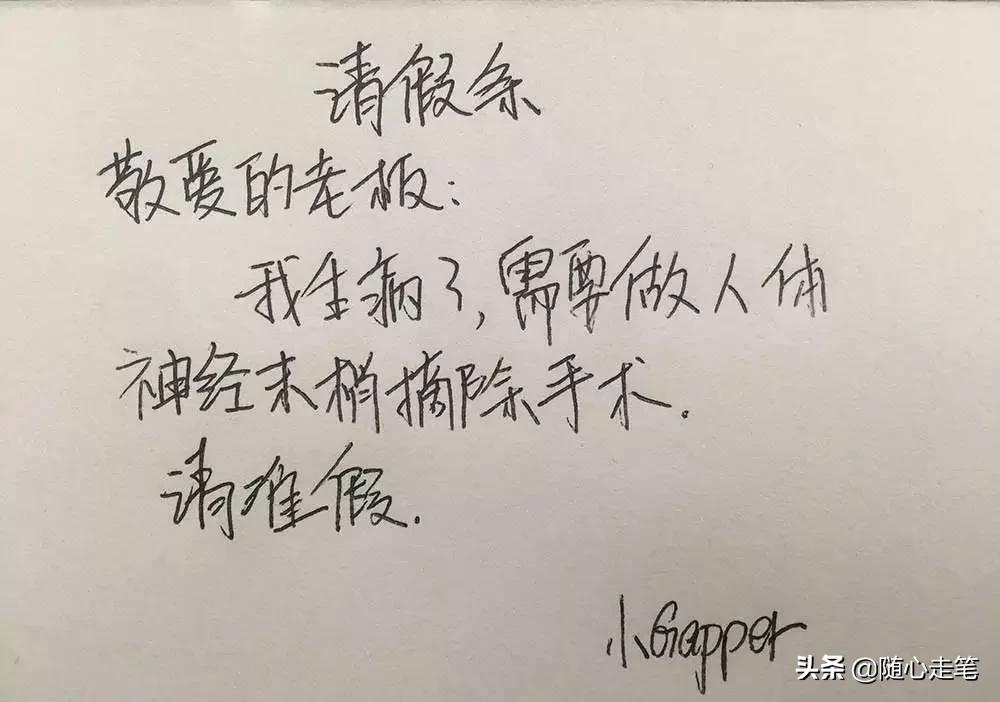 请假条
敬爱的老板:
我生病了,需要做人体
神经末梢摘除手术.
请准假.
小Gapper
头条 @随心走笔